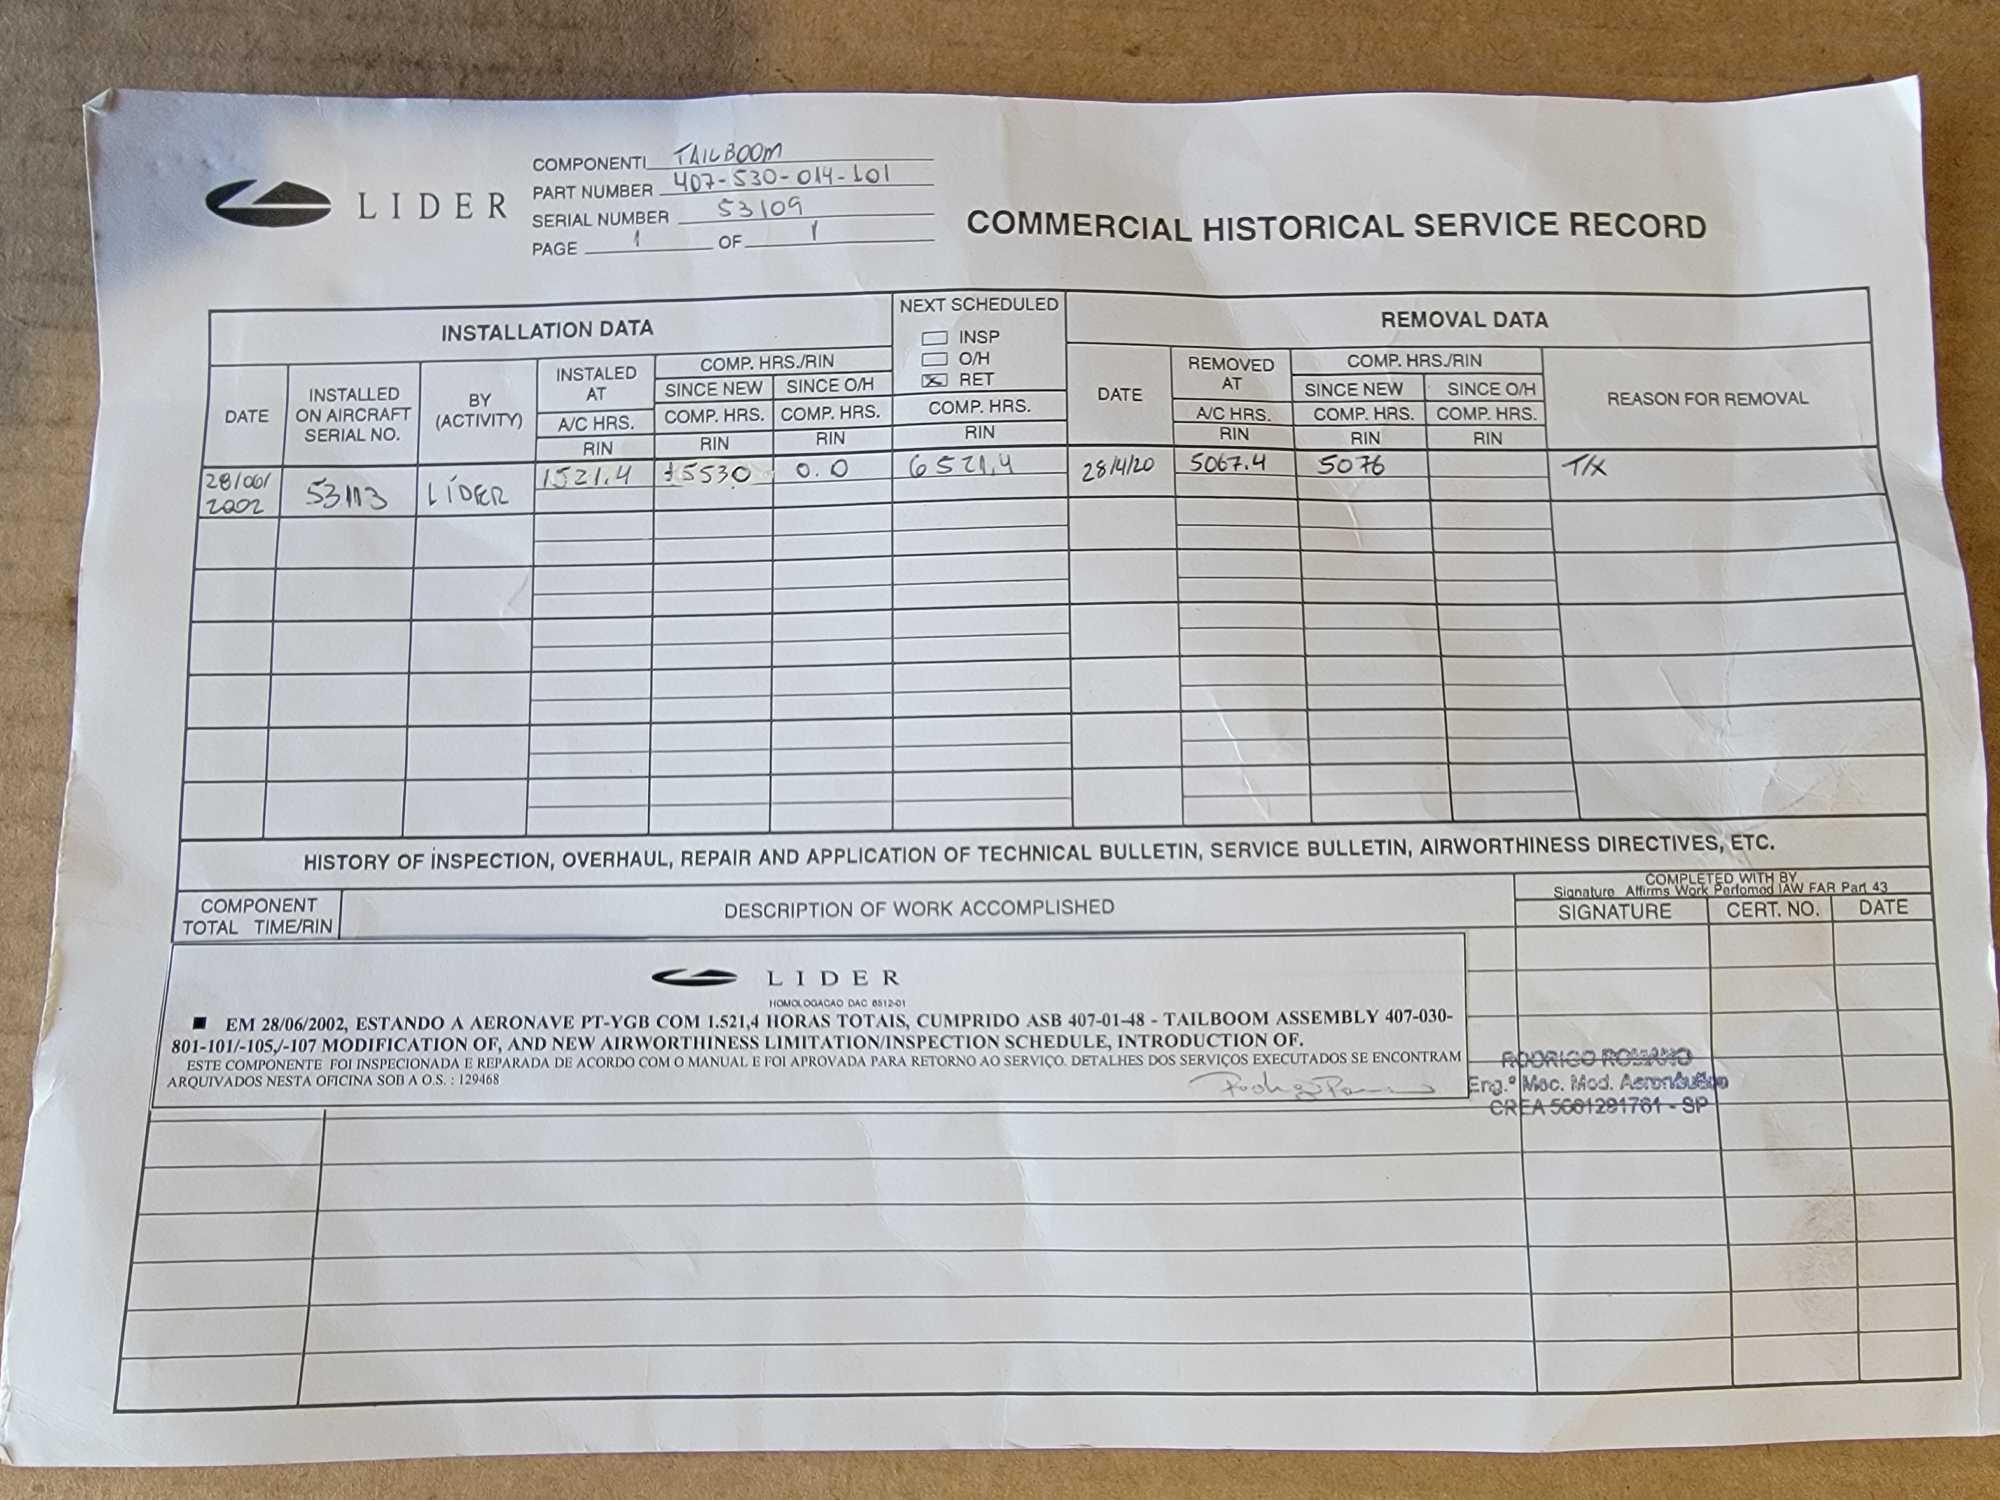 LIDER
COMPONENTI TAILBOOM
PART NUMBER 407-530-014-101
SERIAL NUMBER 53109
PAGE 1 OF 1
COMMERCIAL HISTORICAL SERVICE RECORD
INSTALLATION DATA
NEXT SCHEDULED
INSP
O/H
RET
REMOVAL DATA
DATE
INSTALLED ON AIRCRAFT SERIAL NO.
BY (ACTIVITY)
INSTALED AT
A/C HRS.
RIN
COMP. HRS./RIN
SINCE NEW
COMP. HRS.
RIN
SINCE O/H
COMP. HRS.
RIN
COMP. HRS.
RIN
DATE
REMOVED AT
A/C HRS.
RIN
COMP. HRS./RIN
SINCE NEW
COMP. HRS.
RIN
SINCE O/H
COMP. HRS.
RIN
REASON FOR REMOVAL
28/06/2002 53113 LÍDER 1521.4 15530 0.0 6521,4 28/4/20 5067.4 5076 T/X
HISTORY OF INSPECTION, OVERHAUL, REPAIR AND APPLICATION OF TECHNICAL BULLETIN, SERVICE BULLETIN, AIRWORTHINESS DIRECTIVES, ETC.
COMPONENT TOTAL TIME/RIN
DESCRIPTION OF WORK ACCOMPLISHED
COMPLETED WITH BY
Signature Affirms Work Perfomed IAW FAR Part 43
SIGNATURE CERT. NO. DATE
LIDER
HOMOLOGACAO DAC 6512-01
■ EM 28/06/2002, ESTANDO A AERONAVE PT-YGB COM 1.521,4 HORAS TOTAIS, CUMPRIDO ASB 407-01-48 - TAILBOOM ASSEMBLY 407-030-
801-101/-105,/-107 MODIFICATION OF, AND NEW AIRWORTHINESS LIMITATION/INSPECTION SCHEDULE, INTRODUCTION OF.
ESTE COMPONENTE FOI INSPECIONADA E REPARADA DE ACORDO COM O MANUAL E FOI APROVADA PARA RETORNO AO SERVIÇO. DETALHES DOS SERVIÇOS EXECUTADOS SE ENCONTRAM
ARQUIVADOS NESTA OFICINA SOB A O.S. : 129468
RODRIGO ROMANO
Eng.º Mec. Mod. Aeronáutico
CREA 5061291761 - SP